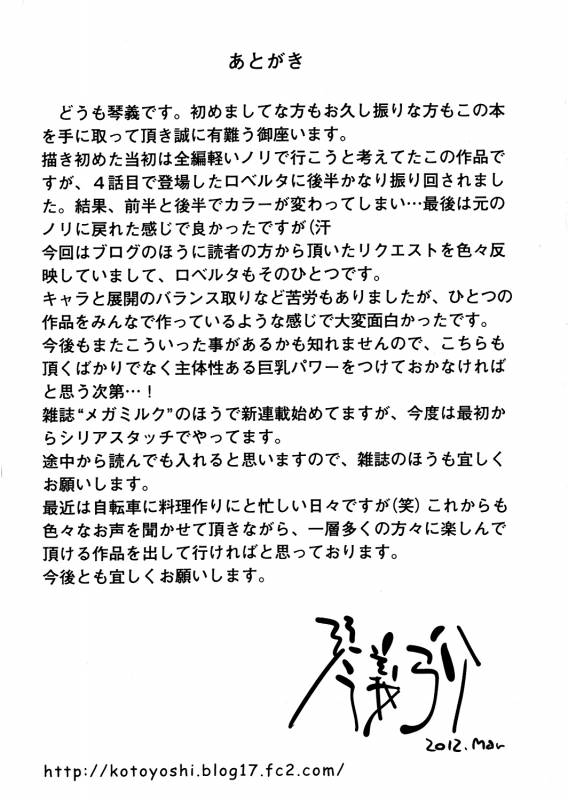 あとがき
どうも琴義です。初めましてな方もお久し振りな方もこの本
を手に取って頂き誠に有難う御座います。
描き初めた当初は全編軽いノリで行こうと考えてたこの作品で
すが、４話目で登場したロベルタに後半かなり振り回されまし
た。結果、前半と後半でカラーが変わってしまい…最後は元の
ノリに戻れた感じで良かったですが(汗
今回はブログのほうに読者の方から頂いたリクエストを色々反
映していまして、ロベルタもそのひとつです。
キャラと展開のバランス取りなど苦労もありましたが、ひとつの
作品をみんなで作っているような感じで大変面白かったです。
今後もまたこういった事があるかも知れませんので、こちらも
頂くばかりでなく主体性ある巨乳パワーをつけておかなければ
と思う次第…！
雑誌“メガミルク”のほうで新連載始めてますが、今度は最初か
らシリアスタッチでやってます。
途中から読んでも入れると思いますので、雑誌のほうも宜しく
お願いします。
最近は自転車に料理作りにと忙しい日々ですが(笑) これからも
色々なお声を聞かせて頂きながら、一層多くの方々に楽しんで
頂ける作品を出して行ければと思っております。
今後とも宜しくお願いします。
琴義弓介
2012.Mar
http://kotoyoshi.blog17.fc2.com/